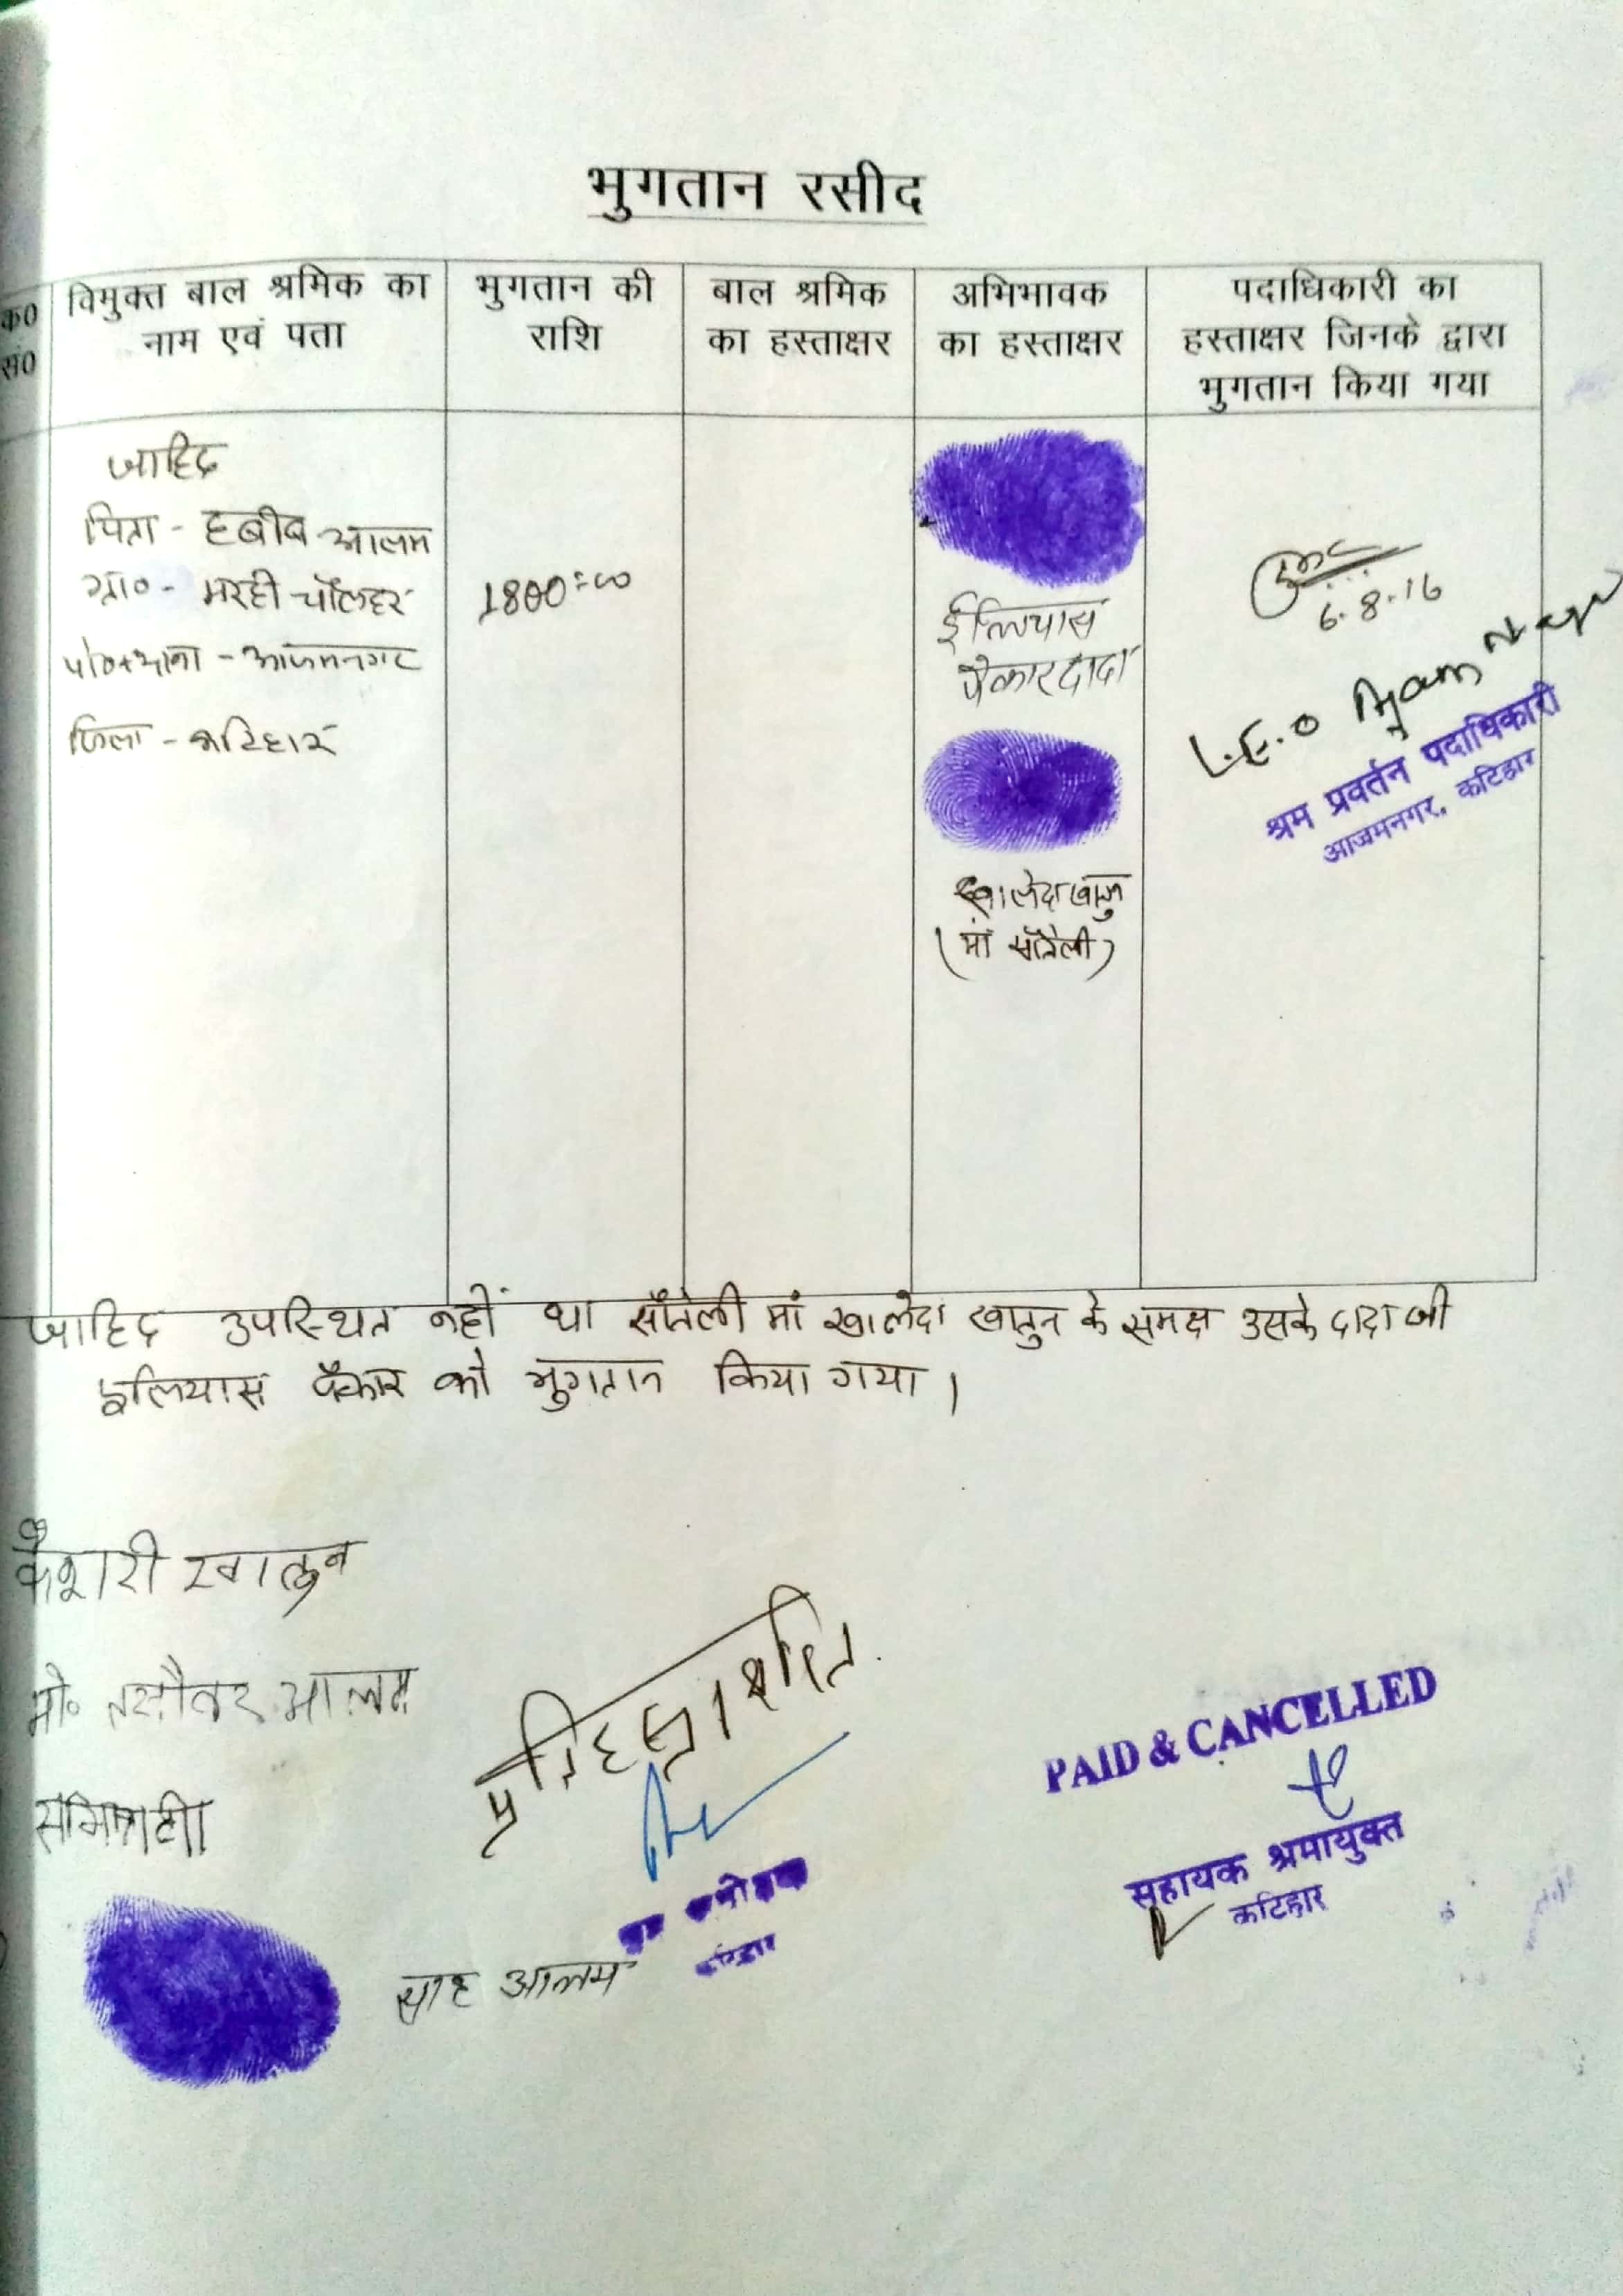 भुगतान रसीद
क्र0 सं0
विमुक्त बाल श्रमिक का
नाम एवं पता
भुगतान की
राशि
बाल श्रमिक
का हस्ताक्षर
अभिभावक
का हस्ताक्षर
पदाधिकारी का
हस्ताक्षर जिनके द्वारा
भुगतान किया गया
जाहिद
पिता - हबीब आलम
ग्रा० -
पो०+थाना - आजमनगर
जिला - कटिहार
1800=00
ईलियास
पैकार दादा
खालेदा खातुन
(मां सौतेली)
6.8.16
L.E.O Ajam Nagar
श्रम प्रवर्तन पदाधिकारी
आजमनगर, कटिहार
जाहिद उपस्थित नहीं था सौतेली मां खालेदा खातुन के समक्ष उसके दादा जी
इलियास पैकार को भुगतान किया गया।
कैशरी खातुन
मो० तसौवर आलम
प्रतिहस्ताक्षरित
साह आलम
PAID & CANCELLED
सहायक श्रमायुक्त
कटिहार